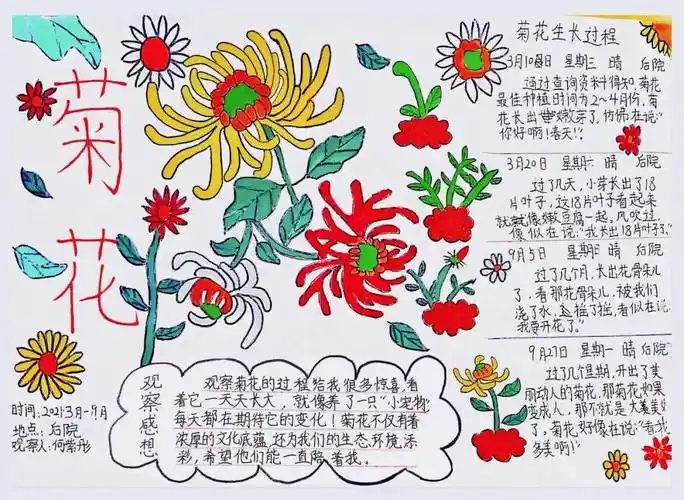 菊花
菊花生长过程
3月10日 星期三 晴 后院
通过查询资料得知,菊花
最佳种植时间为2~4月份,菊
花长出嫩芽了,仿佛在说:“
你好啊!春天!”
3月20日 星期六 晴 后院
过了几天,小芽长出了18
片叶子,这18片叶子看起来
就像嫩豆腐一起,风吹过,
像似在说:“我长出18片叶子”
9月5日 星期日 晴 后院
过了几个月,长出花骨朵儿
了,看那花骨朵儿,被我们
浇了水,摇了摇,看似在说
我要开花了。”
9月27日 星期一 晴 后院
过了几个星期,开出了美
丽动人的菊花,那菊花如果
变成人,那不就是大美美女
了,菊花好像在说:“看我
多美啊!”
观察感想
观察菊花的过程给我很多惊喜,看
着它一天天长大,就像养了一只“小宠物”
每天都在期待它的变化!菊花不仅有着
浓厚的文化底蕴,还为我们的生态环境添
彩,希望他们能一直陪着我。
时间:2021年3月-9月
地点:后院
观察人:何